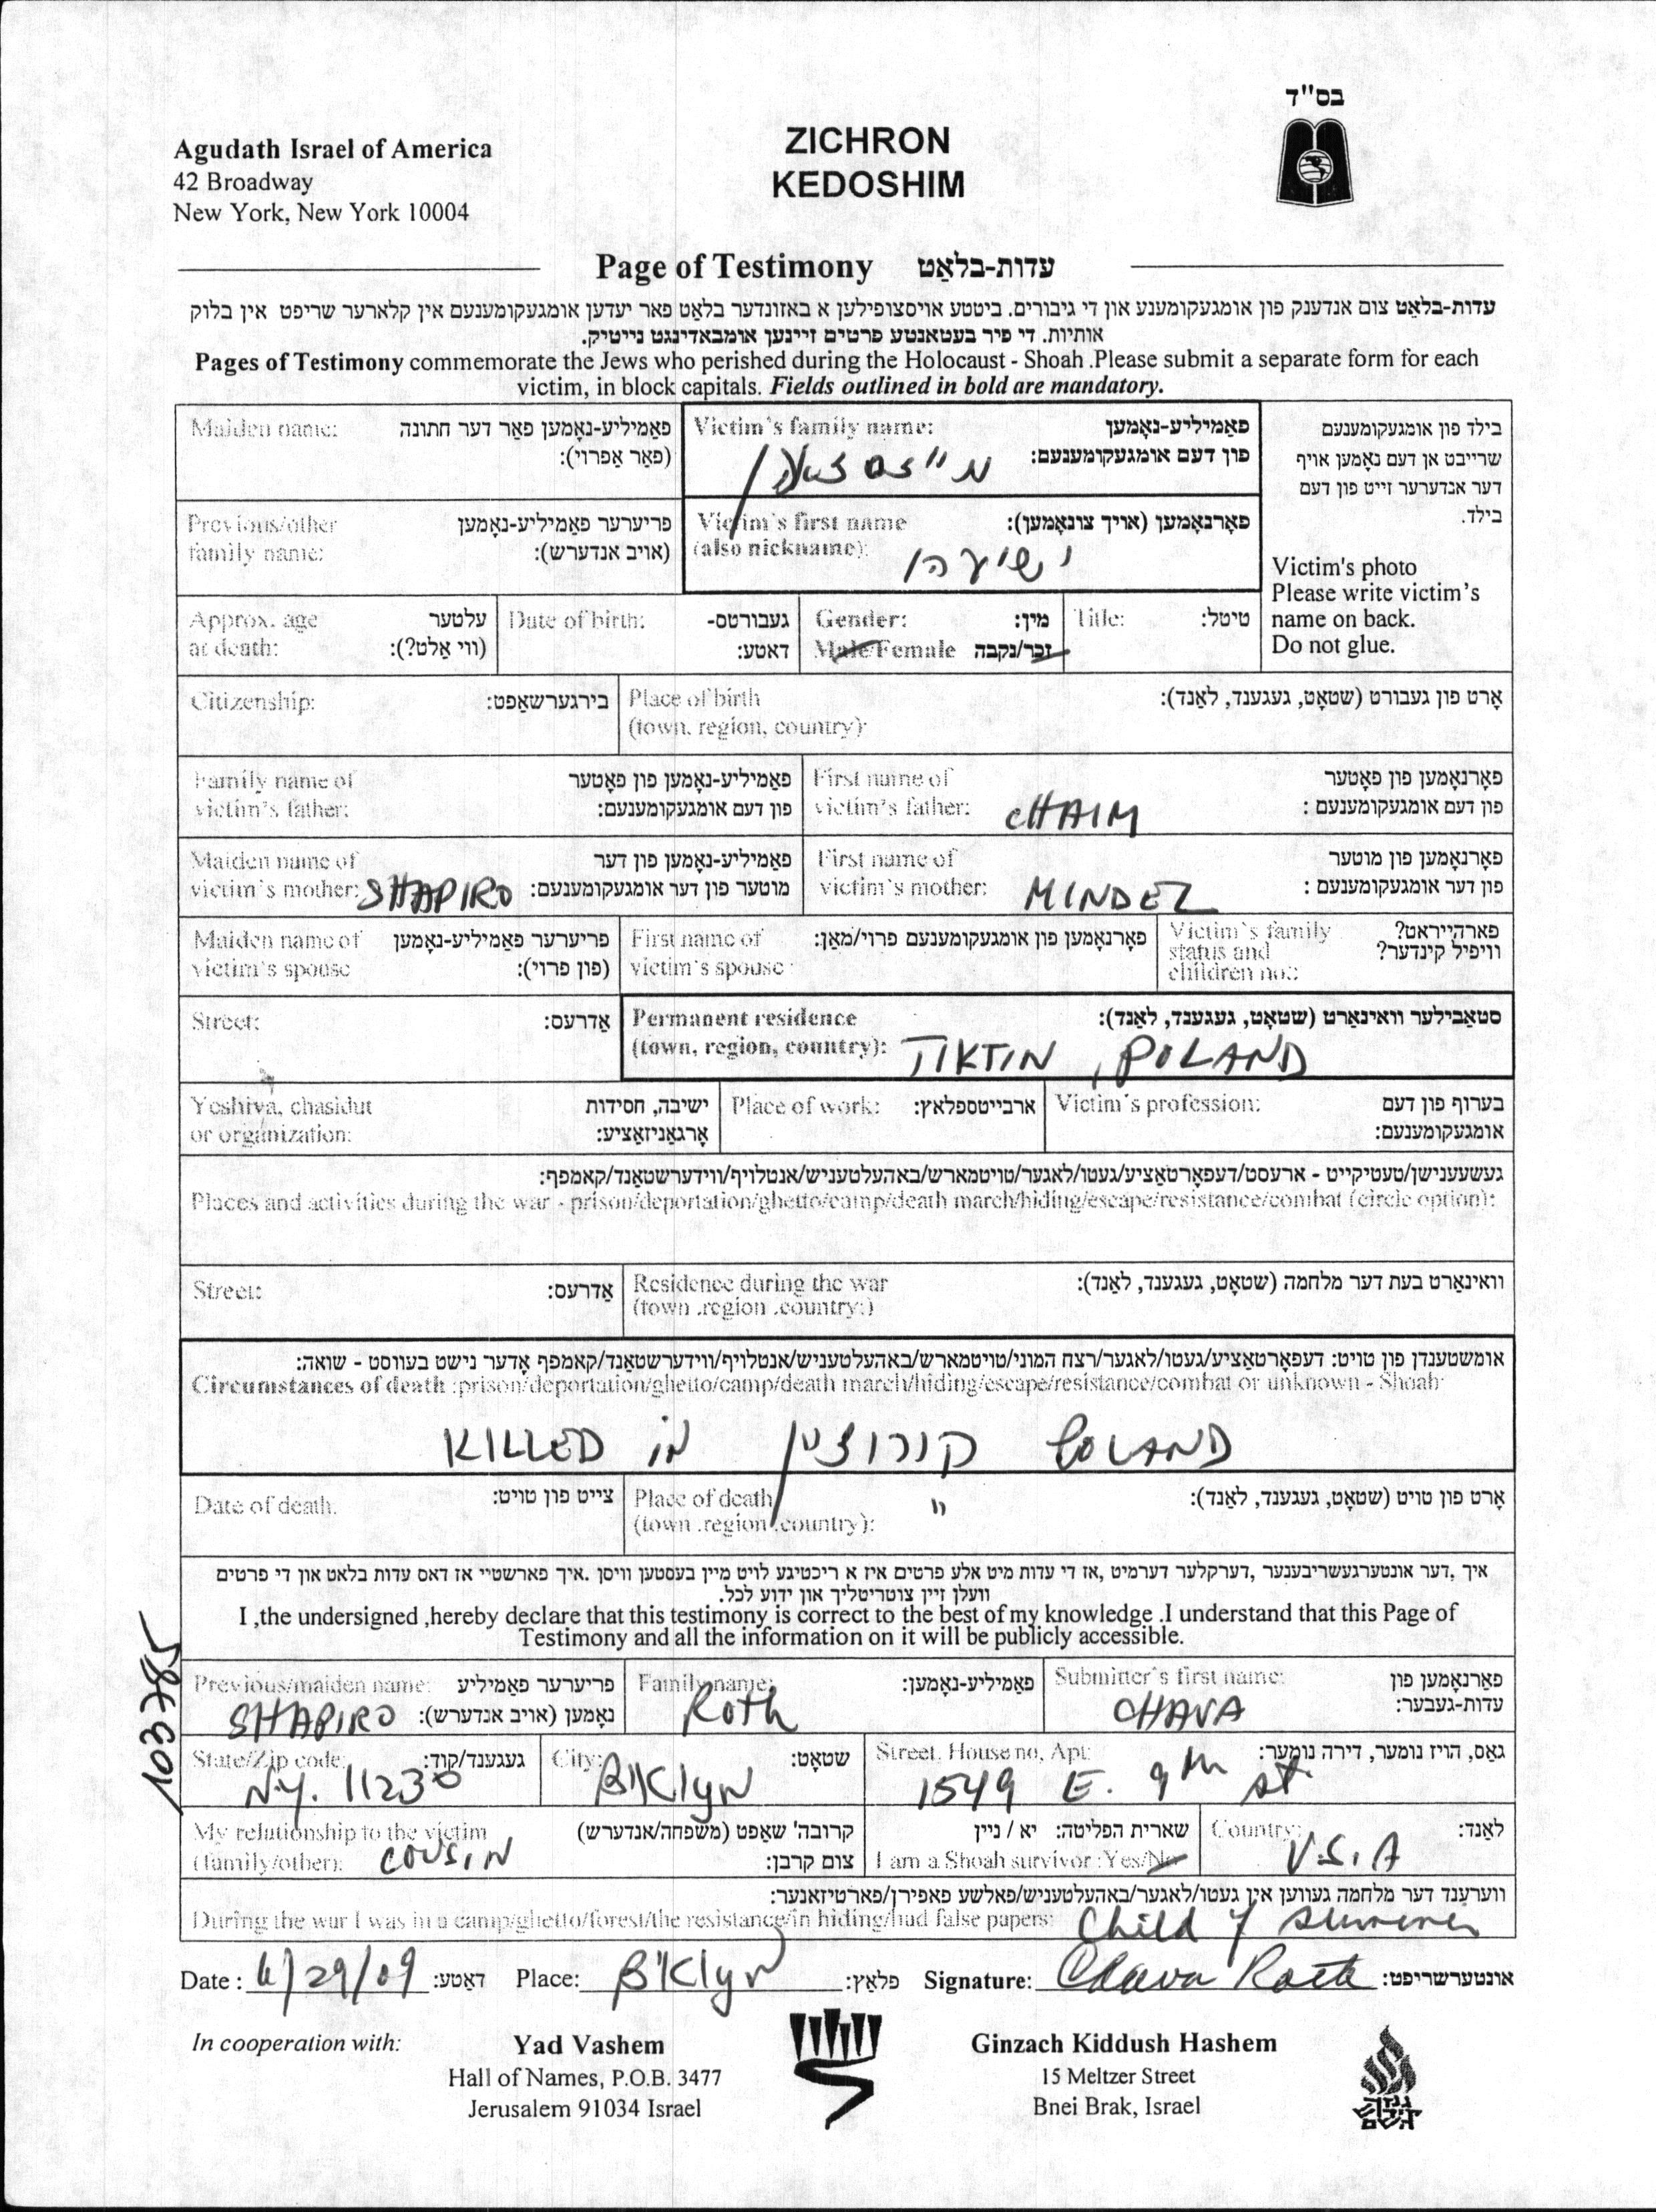 בס"ד
Agudath Israel of America
42 Broadway
New York, New York 10004
ZICHRON
KEDOSHIM
Page of Testimony עדות-בלאַט
עדות-בלאַט צום אנדענק פון אומגעקומענע און די גיבורים. ביטטע אויסצופילען א באזונדער בלאַט פאר יעדען אומגעקומענעם אין קלארער שריפט אין בלוק
אותיות. די פיר בעטאנטע פרטים זיינען אומבאדינגט נייטיק.
Pages of Testimony commemorate the Jews who perished during the Holocaust - Shoah .Please submit a separate form for each
victim, in block capitals. Fields outlined in bold are mandatory.
Maiden name: פאַמיליע-נאָמען פאַר דער חתונה
(פאַר אַפרוי):
Victim's family name: פאַמיליע-נאָמען
פון דעם אומגעקומענעם:
בילד פון אומגעקומענעם
שרייבט אן דעם נאָמען אויף
דער אנדערער זייט פון דעם
בילד.
Victim's photo
Please write victim's
name on back.
Do not glue.
Previous/other פריערער פאַמיליע-נאָמען
family name: (אויב אנדערש):
Victim's first name פאָרנאָמען (אויך צונאָמען):
(also nickname): ישעיהו
Approx. age עלטער
at death: (ווי אַלט?):
Date of birth: געבורטס-
דאטע:
Gender: מין:
Male/Female זכר/נקבה
Title: טיטל:
Citizenship: בירגערשאַפט:
Place of birth אָרט פון געבורט (שטאָט, געגענד, לאַנד):
(town, region, country):
Family name of פאַמיליע-נאָמען פון פאָטער
victim's father: פון דעם אומגעקומענעם:
First name of פאָרנאָמען פון פאָטער
victim's father: CHAIM פון דעם אומגעקומענעם :
Maiden name of פאַמיליע-נאָמען פון דער
victim's mother: SHAPIRO מוטער פון דער אומגעקומענעם:
First name of פאָרנאָמען פון מוטער
victim's mother: MINDEL פון דער אומגעקומענעם :
Maiden name of פריערער פאַמיליע-נאָמען
victim's spouse (פון פרוי):
First name of פאָרנאָמען פון אומגעקומענעם פרוי/מאַן:
victim's spouse :
Victim's family פארהייראט?
status and וויפיל קינדער?
children no.:
Street: אַדרעס:
Permanent residence סטאַבילער וואינאָרט (שטאָט, געגענד, לאַנד):
(town, region, country): TIKTIN, POLAND
Yeshiva, chasidut ישיבה, חסידות
or organization: אָרגאַניזאַציע:
Place of work: ארבייטספלאץ:
Victim's profession: בערוף פון דעם
אומגעקומענעם:
געשעענישן/טעטיקייט - ארעסט/דעפאָרטאַציע/געטו/לאגער/טויטמארש/באהעלטעניש/אנטלויף/ווידערשטאַנד/קאמפף:
Places and activities during the war - prison/deportation/ghetto/camp/death march/hiding/escape/resistance/combat (circle option):
Street: אַדרעס:
Residence during the war וואינאַרט בעת דער מלחמה (שטאָט, געגענד, לאַנד):
(town .region .country:)
אומשטענדן פון טויט: דעפאָרטאַציע/געטו/לאגער/רצח המוני/טויטמארש/באהעלטעניש/אנטלויף/ווידערשטאַנד/קאמפף אָדער נישט בעוווסט - שואה:
Circumstances of death :prison/deportation/ghetto/camp/death march/hiding/escape/resistance/combat or unknown - Shoah:
KILLED IN קורוצין POLAND
Date of death. צייט פון טויט:
Place of death " אָרט פון טויט (שטאָט, געגענד, לאַנד):
(town .region .country):
איך ,דער אונטערגעשריבענער ,דערקלער דערמיט ,אז די עדות מיט אלע פרטים איז א ריכטיגע לויט מיין בעסטען וויסן .איך פארשטיי אז דאס עדות בלאט און די פרטים
וועלן זיין צוטריטליך און ידוע לכל.
I ,the undersigned ,hereby declare that this testimony is correct to the best of my knowledge .I understand that this Page of
Testimony and all the information on it will be publicly accessible.
103785
Previous/maiden name: פריערער פאַמיליע
SHAPIRO נאָמען (אויב אנדערש):
Family name: פאַמיליע-נאָמען:
Roth
Submitter's first name: פארנאָמען פון
CHAVA עדות-געבער:
State/Zip code: געגענד/קוד:
N.Y. 11230
City: שטאָט:
B'Klyn
Street, House no, Apt: גאַס, הויז נומער, דירה נומער:
1549 E. 9th St.
My relationship to the victim קרובה' שאַפט (משפחה/אנדערש)
(family/other): COUSIN צום קרבן:
שארית הפליטה: יא / ניין
I am a Shoah survivor :Yes/No
Country: לאַנד:
U.S.A
ווערענד דער מלחמה געווען אין געטו/לאגער/באהעלטעניש/פאלשע פאפירן/פארטיזאנער:
During the war I was in a camp/ghetto/forest/the resistance/in hiding/had false papers: Child of survivor
Date : 6/29/09 דאַטע: Place: B'Klyn פלאַץ: Signature: Chava Roth אונטערשריפט:
In cooperation with:
Yad Vashem
Hall of Names, P.O.B. 3477
Jerusalem 91034 Israel
Ginzach Kiddush Hashem
15 Meltzer Street
Bnei Brak, Israel
גנזך
קידוש
השם